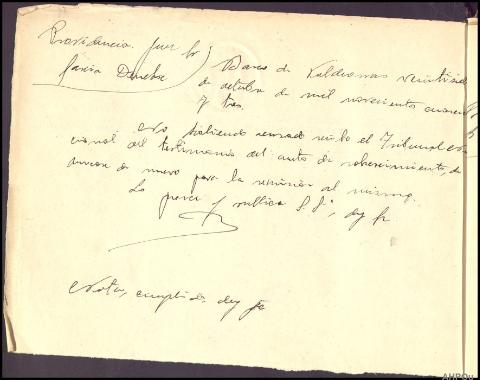 Providencia Juez Sr
García Dancba
Barco de Valdeorras veintisiete
de octubre de mil novecientos cuarenta
y tres.
No habiendo acusado recibo el Tribunal
del testimonio del auto de sobreseimiento,
de nuevo para la remisión al mismo.
Lo provee y rubrica S.Sª, doy fe
Nota, cumplido, doy fe
AHPOu